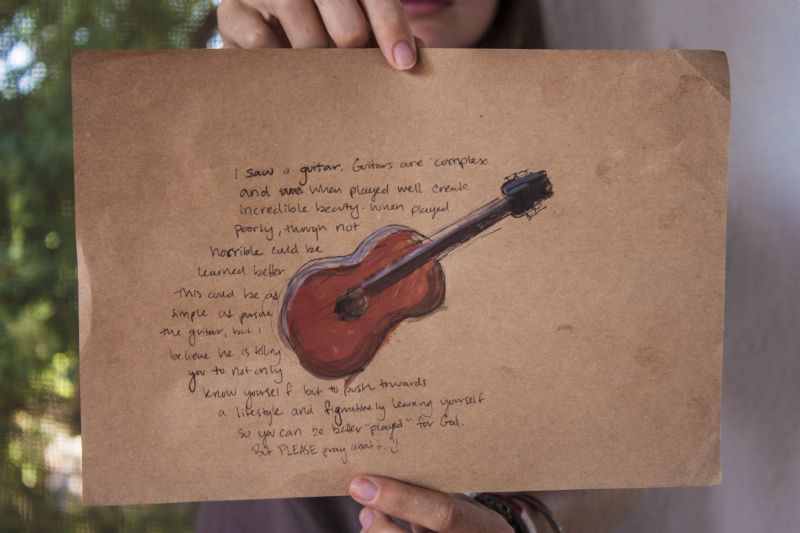 I saw a guitar. Guitars are complex
and when played well create
incredible beauty. When played
poorly, though not
horrible could be
learned better.
This could be as
simple as pursue
the guitar, but I
believe he is telling
you to not only
know yourself but to push towards
a lifestyle and figuratively learning yourself
so you can be better "played" for God.
But PLEASE pray about it. :)